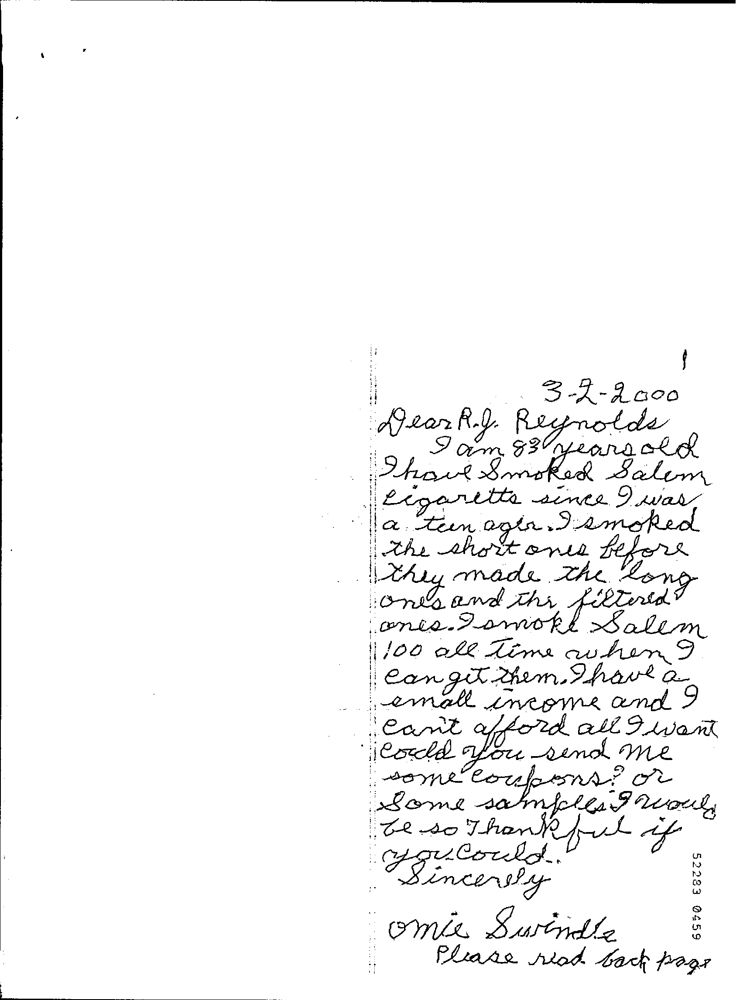 1
3-2-2000
Dear R.J. Reynolds
I am 83 years old
I have Smoked Salem
Cigaretts since I was
a teen ager. I smoked
the short ones before
they made the long
ones and the filtered
ones. I smoke Salem
100 all time when I
can get them. I have a
small income and I
can't afford all I want
Could you send me
some coupons? or
Some samples I would
be so Thankful if
you Could.
Sincerely
Omie Swindle
Please read back page
52283 0459